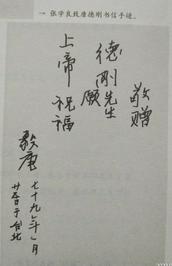 一 张学良致唐德刚书信手迹。
敬赠
德刚先生
愿
上帝祝福
毅庵
七十九年月
于台北